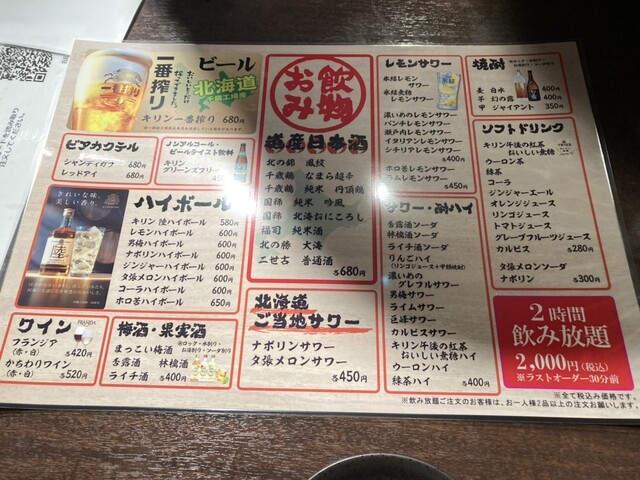 ビール
一番搾り
北海道
千歳工場産
キリン一番搾り 680円
ビアカクテル
シャンディガフ 680円
レッドアイ 680円
ノンアルコール・
ビールテイスト飲料
キリン
グリーンズフリー 450円
きれいな味、
美しい香り。
陸
ハイボール
キリン 陸ハイボール 580円
レモンハイボール 600円
男梅ハイボール 600円
ナポリンハイボール 600円
ジンジャーハイボール 600円
夕張メロンハイボール 600円
コーラハイボール 600円
ホロ苦ハイボール 650円
ワイン
フランジア
(赤・白) 各420円
からわりワイン
(赤・白) 各520円
梅酒・果実酒
まっこい梅酒
杏露酒 林檎酒
ライチ酒 各400円
お飲み物
道産日本酒
北の錦 風紋
千歳鶴 なまら超辛
千歳鶴 純米 丹頂鶴
国稀 純米 吟風
国稀 北海おにころし
福司 純米酒
北の勝 大海
二世古 普通酒
各680円
北海道
ご当地サワー
ナポリンサワー
夕張メロンサワー
各450円
レモンサワー
氷結レモン
サワー
氷結無糖
レモンサワー
濃いめのレモンサワー
パンチレモンサワー
瀬戸内レモンサワー
イタリアンレモンサワー
シチリアレモンサワー
各400円
ホロ苦レモンサワー
ラムレモンサワー
各450円
サワー・酎ハイ
杏露酒ソーダ
林檎酒ソーダ
ライチ酒ソーダ
りんごハイ
(リンゴジュース+甲類焼酎)
濃いめの
グレフルサワー
男梅サワー
ライムサワー
巨峰サワー
カルピスサワー
キリン午後の紅茶
おいしい無糖ハイ
ウーロンハイ
緑茶ハイ 各400円
焼酎
麦 白水 400円
芋 幻の露 400円
甲 ジャイアント 350円
ソフトドリンク
キリン午後の紅茶
おいしい無糖
ウーロン茶
緑茶
コーラ
ジンジャーエール
オレンジジュース
リンゴジュース
トマトジュース
グレープフルーツジュース
カルピス 各280円
夕張メロンソーダ
ナポリン 各300円
2時間
飲み放題
2,000円(税込)
※ラストオーダー30分前
※全て税込み価格です。
※飲み放題ご注文のお客様は、お一人様2品以上の注文お願いします。